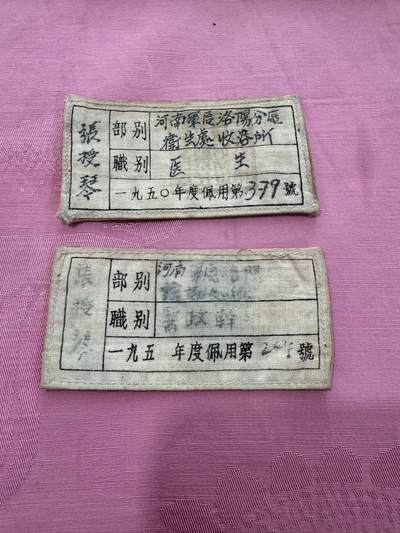 張授琴
部别 河南軍區洛陽分區
衛生處收容所
職别 医生
一九五〇年度佩用第379號
張授琴
部别 河南
職别 政幹
一九五 年度佩用第 號